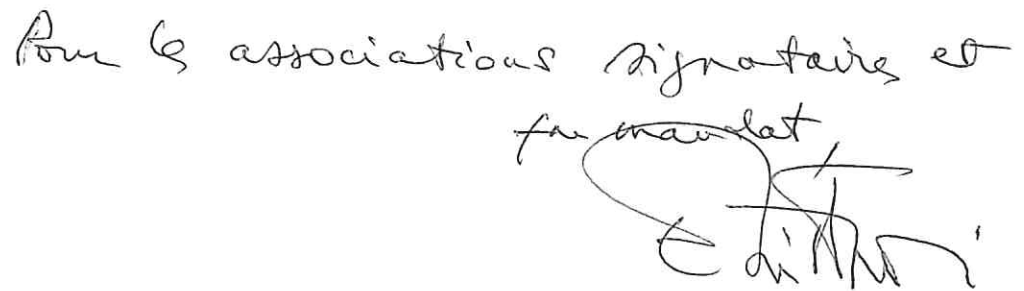 Pour les associations signataires et
par mandat